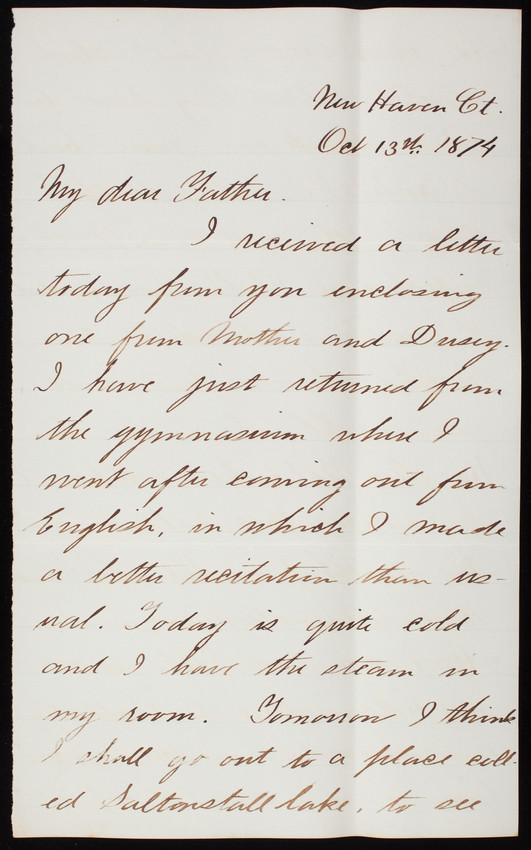 New Haven Ct.
Oct 13th. 1874
My dear Father.
I received a letter
today from you enclosing
one from Mother and Dusey.
I have just returned from
the gymnasium where I
went after coming out from
English, in which I made
a better recitation than us-
ual. Today is quite cold
and I have the steam in
my room. Tomorrow I think
I shall go out to a place call-
ed Saltonstall lake, to see